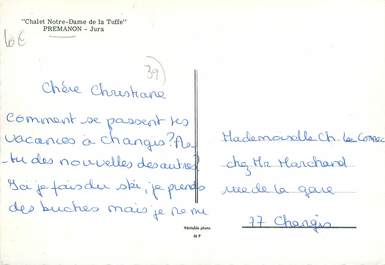 "Chalet Notre-Dame de la Tuffe"
PREMANON - Jura
6€
39
Chère Christiane
Comment se passent tes
vacances à Changis? As
-tu des nouvelles des autres?
Ici je fais du ski, je prends
des buches mais je ne me
Mademoiselle Ch. Le Connec
chez Mr Marchand
rue de la gare
77 Changis
Véritable photo
M P